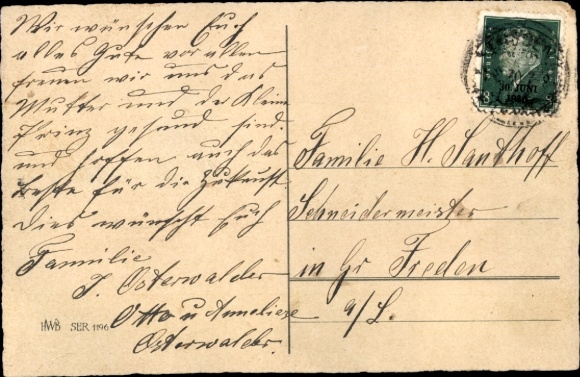 Wir wünschen Euch
alles Gute vor allen
freuen wir uns das
Mutter und der Kleine
Prinz gesund sind.
und hoffen auch das
beste für die Zukunft.
Dies wünscht Euch
Familie
J. Osterwalder
Otto u Anneliese
Osterwalder.
HWB SER. 1196
30. JUNI
1930
Familie H. Sandhoff
Schneidermeister
in Gr Freden
a/L.